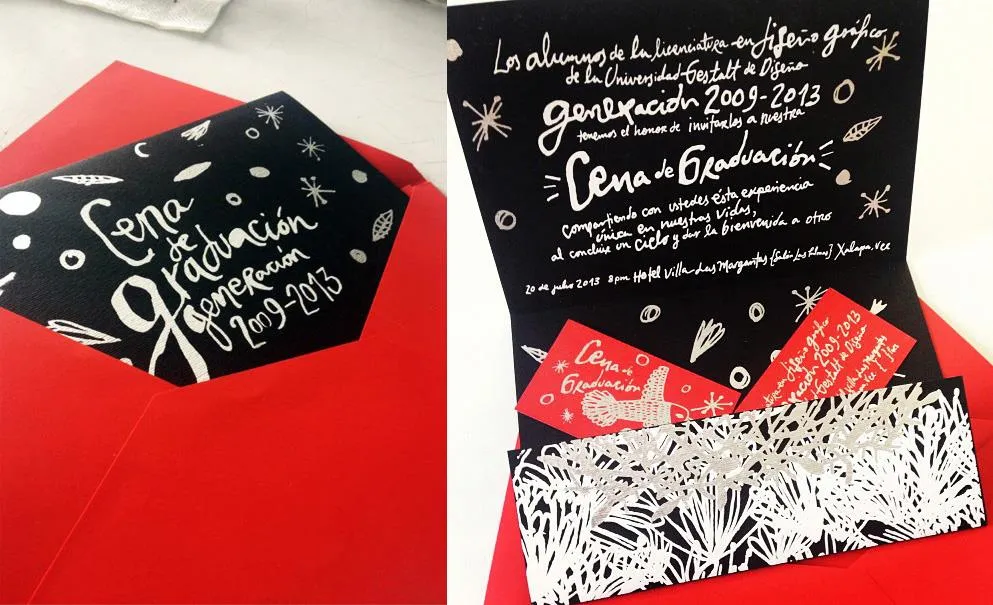 Cena
de
graduación
generación
2009-2013
Los alumnos de la licenciatura en diseño gráfico
de la Universidad Gestalt de Diseño
generación 2009-2013
tenemos el honor de invitarlos a nuestra
Cena de Graduación
compartiendo con ustedes ésta experiencia
única en nuestras vidas,
al concluir un ciclo y dar la bienvenida a otro
20 de julio 2013 8pm Hotel Villa Las Margaritas (Salón Las Palmas) Xalapa, Ver
Cena de
Graduación
en diseño gráfico
2009-2013
Gestalt de Diseño
Las Margaritas